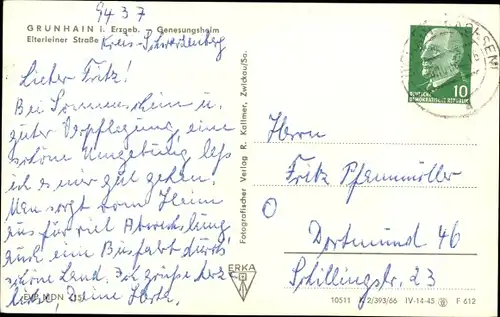 9437
GRUNHAIN i. Erzgeb. Genesungsheim
Elterleiner Straße Kreis-Schwarzenberg
Lieber Fritz!
Bei Sonnenschein u.
guter Verpflegung, eine
schöne Umgebung laß
ich es mir gut gehen.
Man sorgt vom Heim
aus für viel Abwechslung
auch eine Busfahrt durchs
schöne Land. Ich grüße herz
lichst, Deine Herta.
EVP MDN
Fotografischer Verlag R. Kallmer, Zwickau/Sa.
ERKA
10
DEUTSCHE
DEMOKRATISCHE REPUBLIK
Herrn
Fritz Pfannmöller
O
Dortmund 46
Schillingstr. 23
10511 K 2/393/66 IV-14-45 F 612